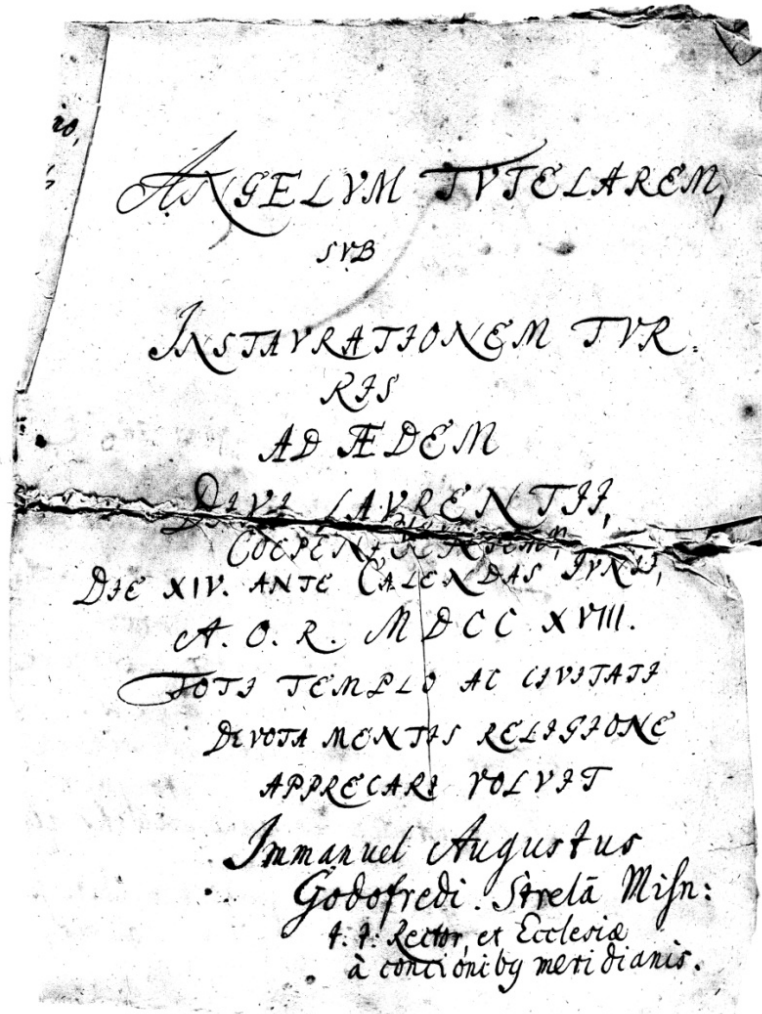 ro,
ANGELVM TVTELAREM,
SVB
INSTAVRATIONEM TVR
RIS
AD ÆDEM
DIVI LAVRENTII,
DIE XIV. ANTE CALENDAS IVNII,
A. O. R. MDCC XVIII.
TOTI TEMPLO AC CIVITATI
DEVOTA MENTIS RELIGIONE
APPRECARI VOLVIT
Immanuel Augustus
Godofredi. Strelâ Misn:
t. t. Rector, et Ecclesiæ
à concioniby meridianis.